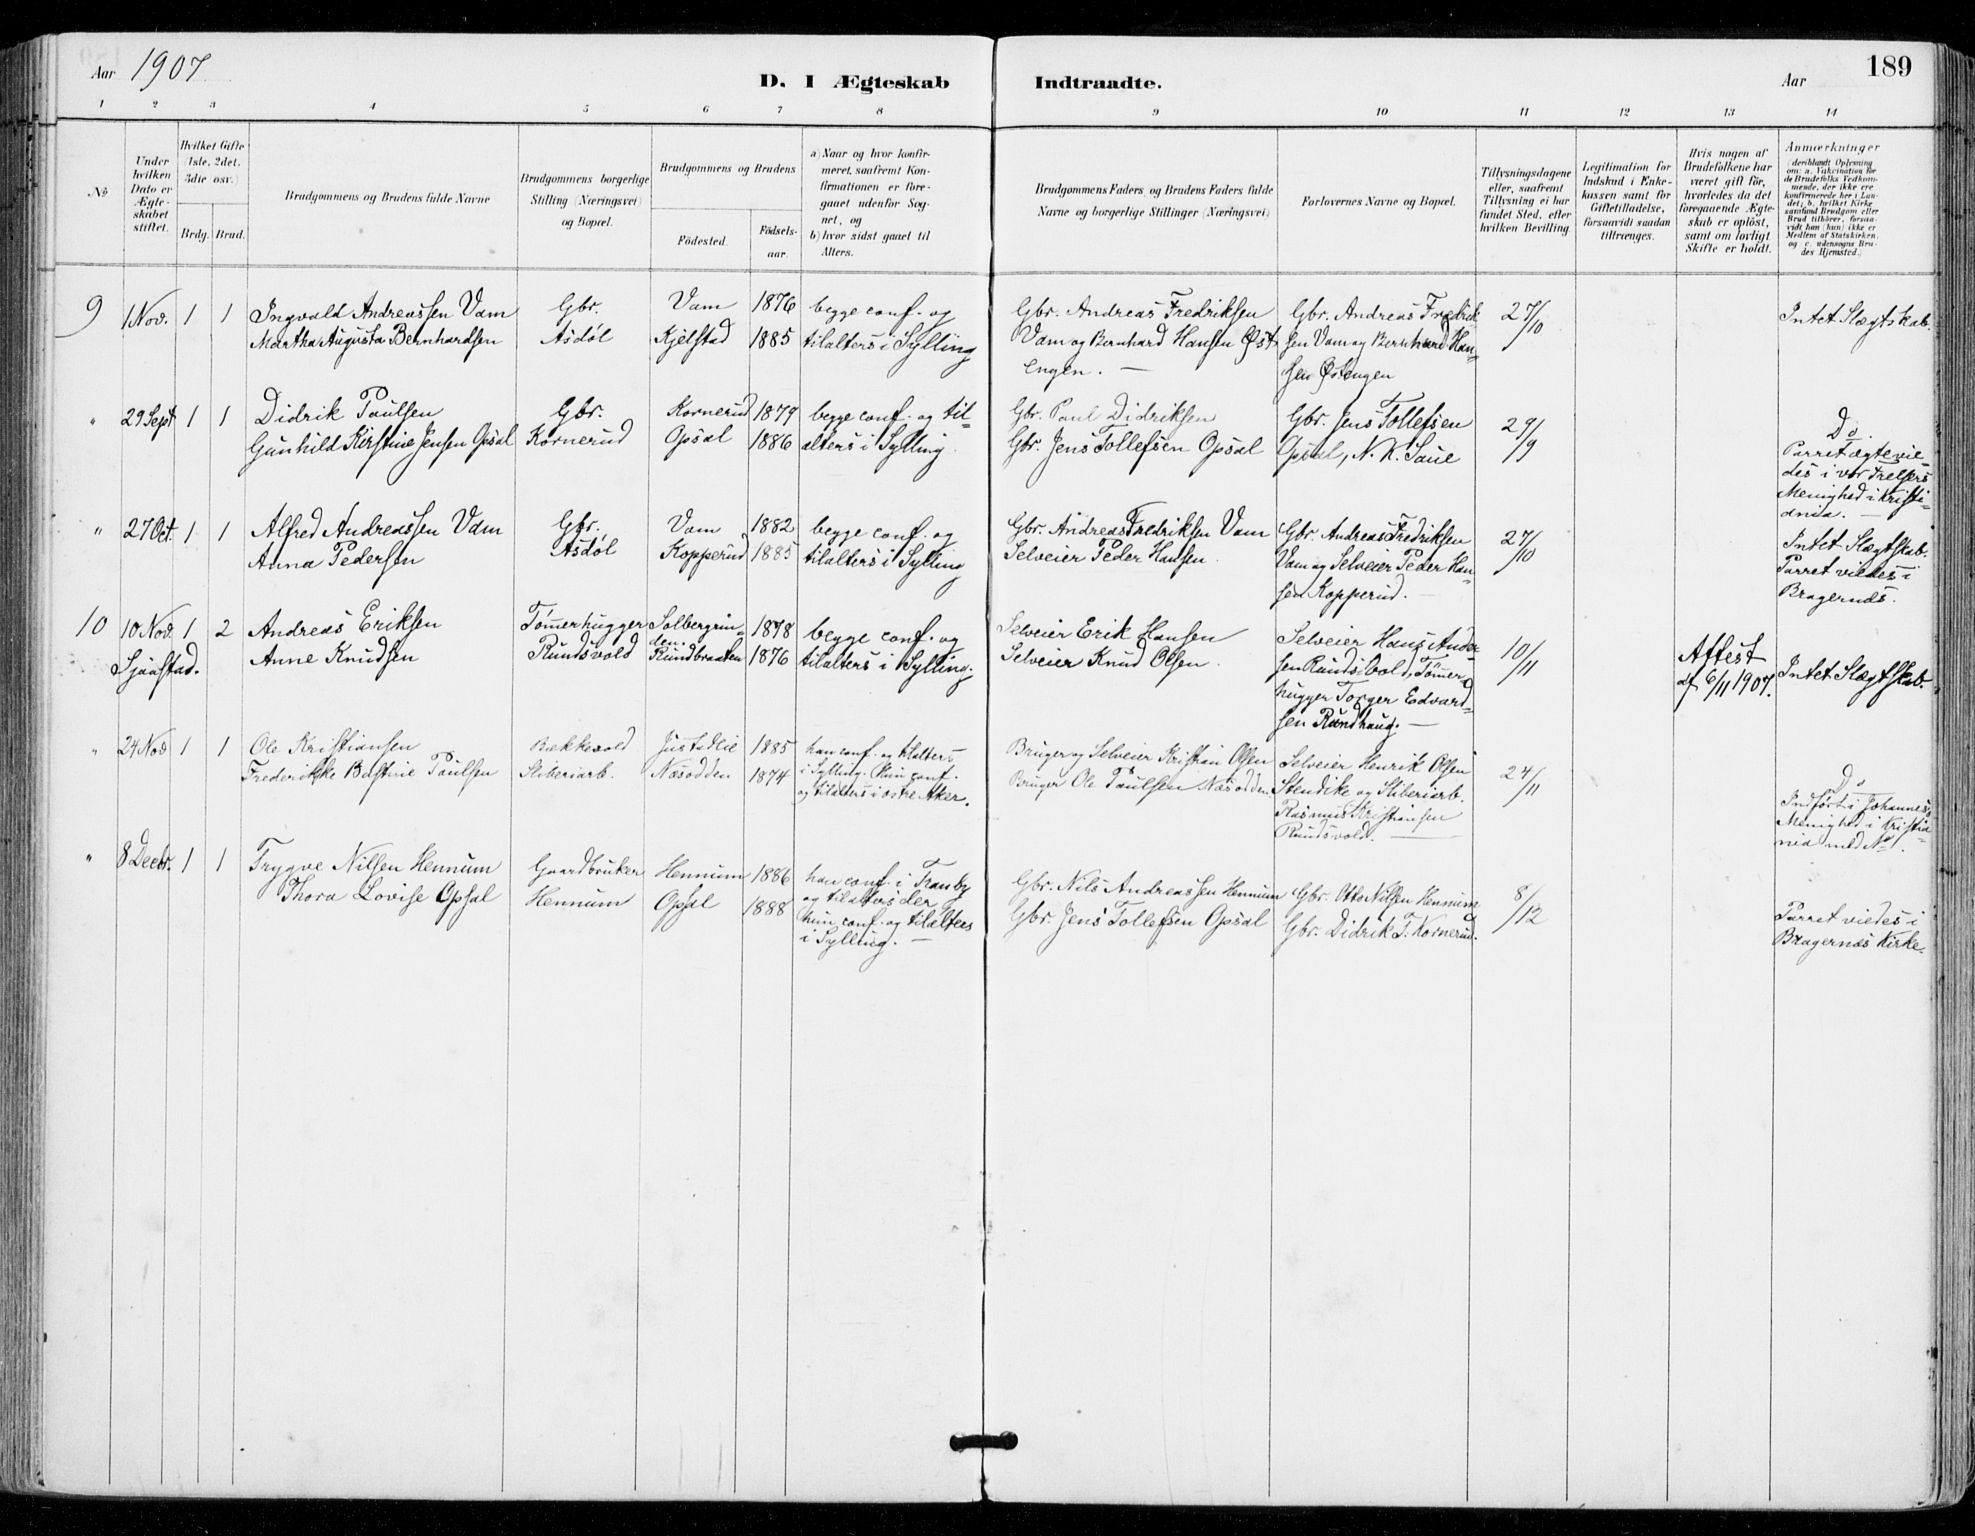 Aar 1907
D. I Ægteskab Indtraadte.
Aar
189
1 2 3 4 5 6 7 8 9 10 11 12 13 14
No
Under
hvilken
Dato er
Ægte-
skabet
stiftet.
Hvilket Gifte
(1ste, 2det,
3die osv.)
Brdg. Brud.
Brudgommens og Brudens fulde Navne
Brudgommens borgerlige
Stilling (Næringsvei)
og Bopæl.
Brudgommens og Brudens
Födested.
Födsels-
aar.
a) Naar og hvor konfir-
meret, saafremt Kon-
firmationen er fore-
gaaet udenfor Sog-
net, og
b) hvor sidst gaaet til
Alters.
Brudgommens Faders og Brudens Faders fulde
Navne og borgerlige Stillinger (Næringsvei)
Forlovernes Navne og Bopæl.
Tillysningsdagene
eller, saafremt
Tillysning ei har
fundet Sted, efter
hvilken Bevilling.
Legitimation for
Indskud i Enke-
kassen samt for
Giftetilladelse,
forsaavidt saadan
tiltrænges.
Hvis nogen af
Brudefolkene har
været gift før,
hvorledes da det
foregaaende Ægte-
skab er oplöst,
samt om lovligt
Skifte er holdt.
Anmærkninger
(deriblandt Oplysning
om: a. Vakcination for
de Brudefolks Vedkom-
mende, der ikke ere
konfirmerede her i Lan-
det; b. hvilket Kirke
samfund Brudgom eller
Brud tilhører, forsaa-
vidt han (hun) ikke er
Medlem af Statskirken,
og c. udensogns Bru-
des Hjemsted.)
9 1 Nov. 1 1
Ingvald Andreassen Vam
Martha Augusta Bernhardsen
Gbr.
Asdøl
Vam 1876
Kjelstad 1885
begge conf. og
tilalters i Sylling
Gbr. Andreas Fredriksen
Vam og Bernhard Hansen Øst
engen. —
Gbr. Andreas Fredrik-
sen Vam og Bernhard Han-
sen Østengen
27/10
Intet Slægtskab.
" 29 Sept 1 1
Didrik Paulsen
Gunhild Kirstine Jensen Opsal
Gbr.
Kornerud
Kornerud 1879
Opsal 1886
begge conf. og til-
alters i Sylling.
Gbr. Paul Didriksen
Gbr. Jens Tollefsen Opsal
Gbr. Jens Tollefsen
Opsal, N. K. Saue
29/9
Do.
Parret ægtevie-
des i vor Frelsers
Menighed i Kristi-
ania. —
" 27 Oct. 1 1
Alfred Andreassen Vam
Anna Pedersen
Gbr.
Asdøl
Vam 1882
Kopperud 1885
begge conf. og
tilalters i Sylling
Gbr. Andreas Fredriksen Vam
Selveier Peder Hansen.
Gbr. Andreas Fredriksen
Vam og Selveier Peder Han-
sen Kopperud. —
27/10
Intet Slægtskab.
Parret viedes i
Bragernæs.
10 10 Nov. 1 2
Sjaastad.
Andreas Eriksen
Anne Knudsen
Tømerhugger
Rundsvold
Solbergrin-
den 1878
Rundbraaten 1876
begge conf. og
tilalters i Sylling.
Selveier Erik Hansen
Selveier Knud Olsen.
Selveier Hans Ander-
sen Rundsvold, Tømer-
hugger Torger Edvard-
sen Rundhaug. —
10/11
Attest
af 6/11 1907.
Intet Slægtskab.
" 24 Nov 1 1
Ole Kristiansen
Frederikke Bastine Paulsen
Bækkevold
Sliberiarb.
Justadlie 1885
Næsodden 1874
han conf. og tilalters
i Sylling. Hun conf.
og tilalters i østre Aker.
Bruger og Selveier Kristian Olsen
Bruger Ole Paulsen Næsodden
Selveier Henrik Olsen
Stendike og Sliberiarb.
Rasmus Kristiansen
Rundsvold. —
24/11
Do
Indført i Johannes
Menighed i Kristia-
nia med No .
" 8 Decbr. 1 1
Trygve Nilsen Hennum
Thora Lovise Opsal
Gaardbruker
Hennum
Hennum 1886
Opsal 1888
han conf. i Tranby
og tilalters der
hun conf. og tilalters
i Sylling. —
Gbr. Nils Andreassen Hennum
Gbr. Jens Tollefsen Opsal
Gbr. Otto Nilsen Hennum
Gbr. Didrik T. Kornerud.
8/12
Parret viedes i
Bragernæs Kirke.